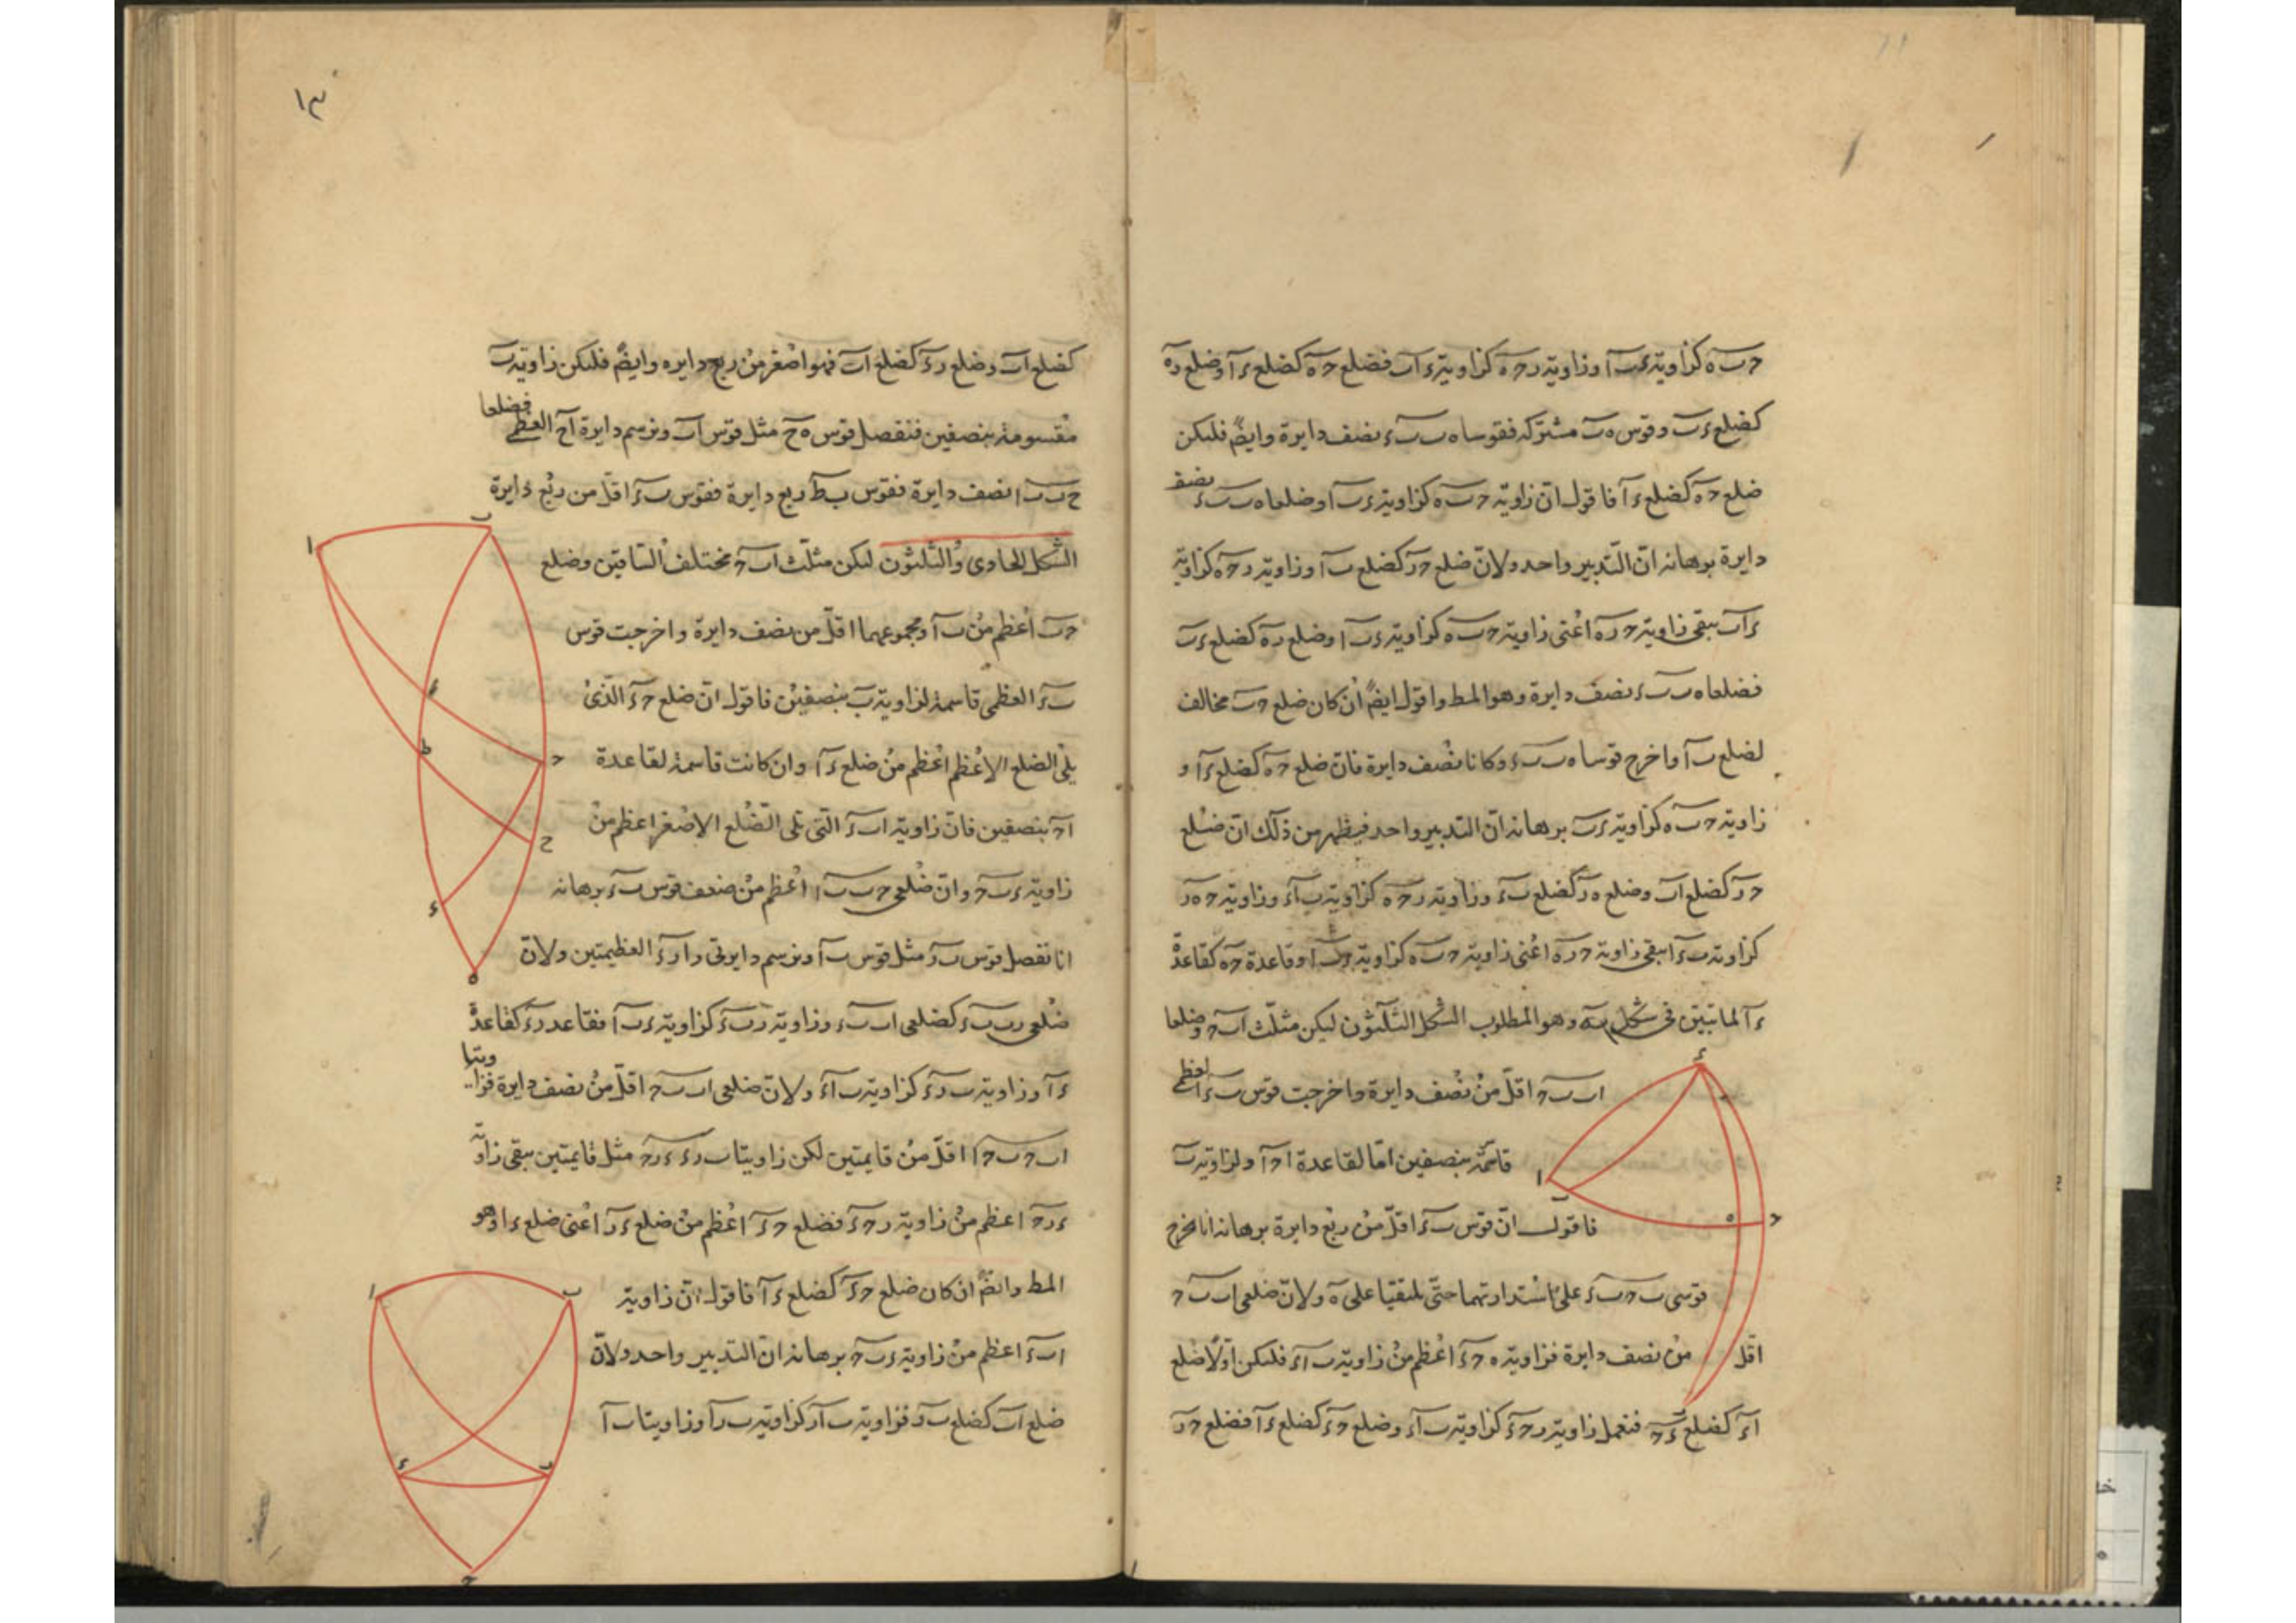 حب ه كزاوية ءب آ وزاوية رح ه كزاوية ء اب فضلع ح ه كضلع ء آ وضلع ر ه
كضلع ءب وقوس ه ب مشتركه فقوسا ه ب ب ء نصف دايرة وايضً فليكن
ضلع ح ه كضلع ء آ فاقول ان زاوية حب ه كزاوية ءب آ وضلعا ه ب ب ء نصف
دايرة برهانه ان التدبير واحد ولان ضلع ح ر كضلع ب آ وزاوية رح ه كزاوية
ء اب يبقى زاوية ح ر ه اعنى زاوية حب ه كزاوية ءب آ وضلع ر ه كضلع ءب
فضلعا ه ب ب ء نصف دايرة وهو المط واقول ايضً ان كان ضلع حب مخالف
لضلع ب آ واخرج قوسا ه ب ب ء وكانا نصف دايرة فان ضلع ح ه كضلع ء آ و
زاوية حب ه كزاوية ءب برهانه ان التدبير واحد فيظهر من ذلك ان ضلع
ح ر كضلع اب وضلع ه ر كضلع ب ء وزاوية رح ه كزاوية ب آ ء وزاوية ح ه ر
كزاوية ب ء ا يبقى زاوية ح ر ه اعنى زاوية حب ه كزاوية ءب ا وقاعدة ح ه كقاعدة
ء آ لما تبين فى شكل وهو المطلوب الشكل الثلثون ليكن مثلث اب ح وضلعا
اب ب ح اقل من نصف دايرة واخرجت قوس ب ء العظمى
قاسمة بنصفين اما لقاعدة ا ح آ ولزاوية ب
فاقول ان قوس ب ء اقل من ربع دايرة برهانه انا نخرج
قوسى ب ح ب ء على استدارتهما حتى يلتقيا على ه ولان ضلعى اب ب ح
اقل من نصف دايرة فزاوية ه ح ء اعظم من زاوية ب آ ء فليكن اولا ضلع
آ ء كضلع ء ح فنعمل زاوية رح ء كزاوية ب آ ء وضلع ح ء كضلع ء آ فضلع ح ر
١٣
كضلع اب وضلع ر ء كضلع اب فهو اصغر من ربع دايره وايضً فليكن زاوية ب
مقسومة بنصفين فنفصل قوس ه ح مثل قوس اب ونرسم دايرة آ ح العظمى فضلعا
ح ب ب ا نصف دايرة فقوس ب ط ربع دايرة فقوس ب ء اقل من ربع دايرة
الشكل الحادى والثلثون ليكن مثلث اب ح مختلف الساقين وضلع
حب اعظم من ب آ ومجموعهما اقل من نصف دايرة واخرجت قوس
ب ء العظمى قاسمة لزاوية ب بنصفين فاقول ان ضلع ح ء الذى
يلى الضلع الاعظم اعظم من ضلع ء آ وان كانت قاسمة لقاعدة
ا ح بنصفين فان زاوية اب ء التى تلى الضلع الاصغر اعظم من
زاوية ءب ح وان ضلعى ح ب ب ا اعظم من ضعف قوس ب ء برهانه
انا نفصل قوس ب ر مثل قوس ب آ ونرسم دايرتى را ر ء العظيمتين ولان
ضلعى رب ب ء كضلعى اب ب ء وزاوية رب ء كزاوية ءب آ فقاعدة ر ء كقاعدة
ء آ وزاوية ب ر ء كزاوية ب آ ء ولان ضلعى اب ب ح اقل من نصف دايرة فزاويتا
اب ح ب ح ا اقل من قايمتين لكن زاويتا ب ر ء ء ر ح مثل قايمتين يبقى زاوية
ء ر ح اعظم من زاوية رح ء فضلع ح ء اعظم من ضلع ء ر اعنى ضلع ء ا وهو
المط وايضً ان كان ضلع ح ء كضلع ء آ فاقول ان زاوية
اب ء اعظم من زاوية ءب ح برهانه ان التدبير واحد ولان
ضلع اب كضلع ب ر فزاوية ب آ ر كزاوية ب ر آ وزاويتا ب آ